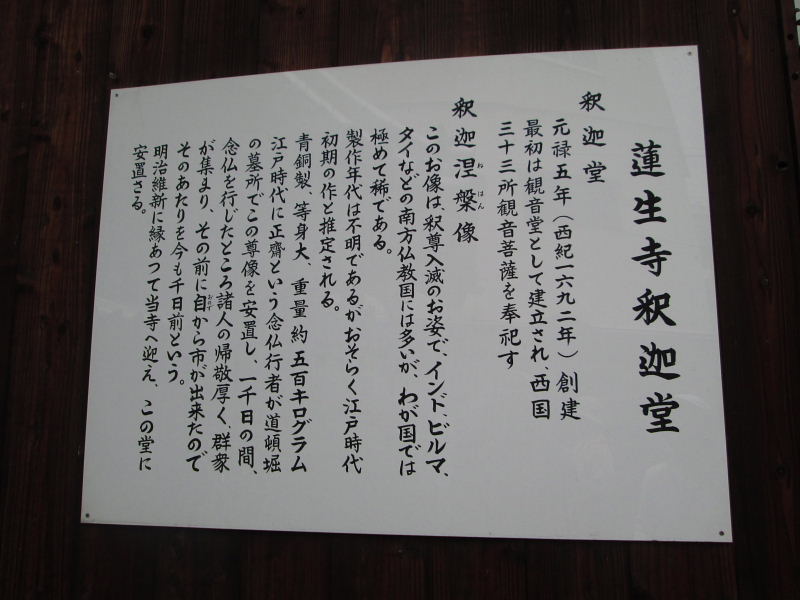 蓮生寺釈迦堂
釈迦堂
元禄五年（西紀一六九二年）創建
最初は観音堂として建立され、西国
三十三所観音菩薩を奉祀す
釈迦涅槃像
ねはん
このお像は、釈尊入滅のお姿で、インド、ビルマ、
タイなどの南方仏教国には多いが、わが国では
極めて稀である。
製作年代は不明であるがおそらく江戸時代
初期の作と推定される。
青銅製、等身大、重量約五百キログラム
江戸時代に正齋という念仏行者が道頓堀
の墓所でこの尊像を安置し、一千日の間、
念仏を行じたところ諸人の帰敬厚く、群衆
が集まり、その前に自から市が出来たので
おのず
そのあたりを今も千日前という。
明治維新に縁あつて当寺へ迎え、この堂に
安置さる。